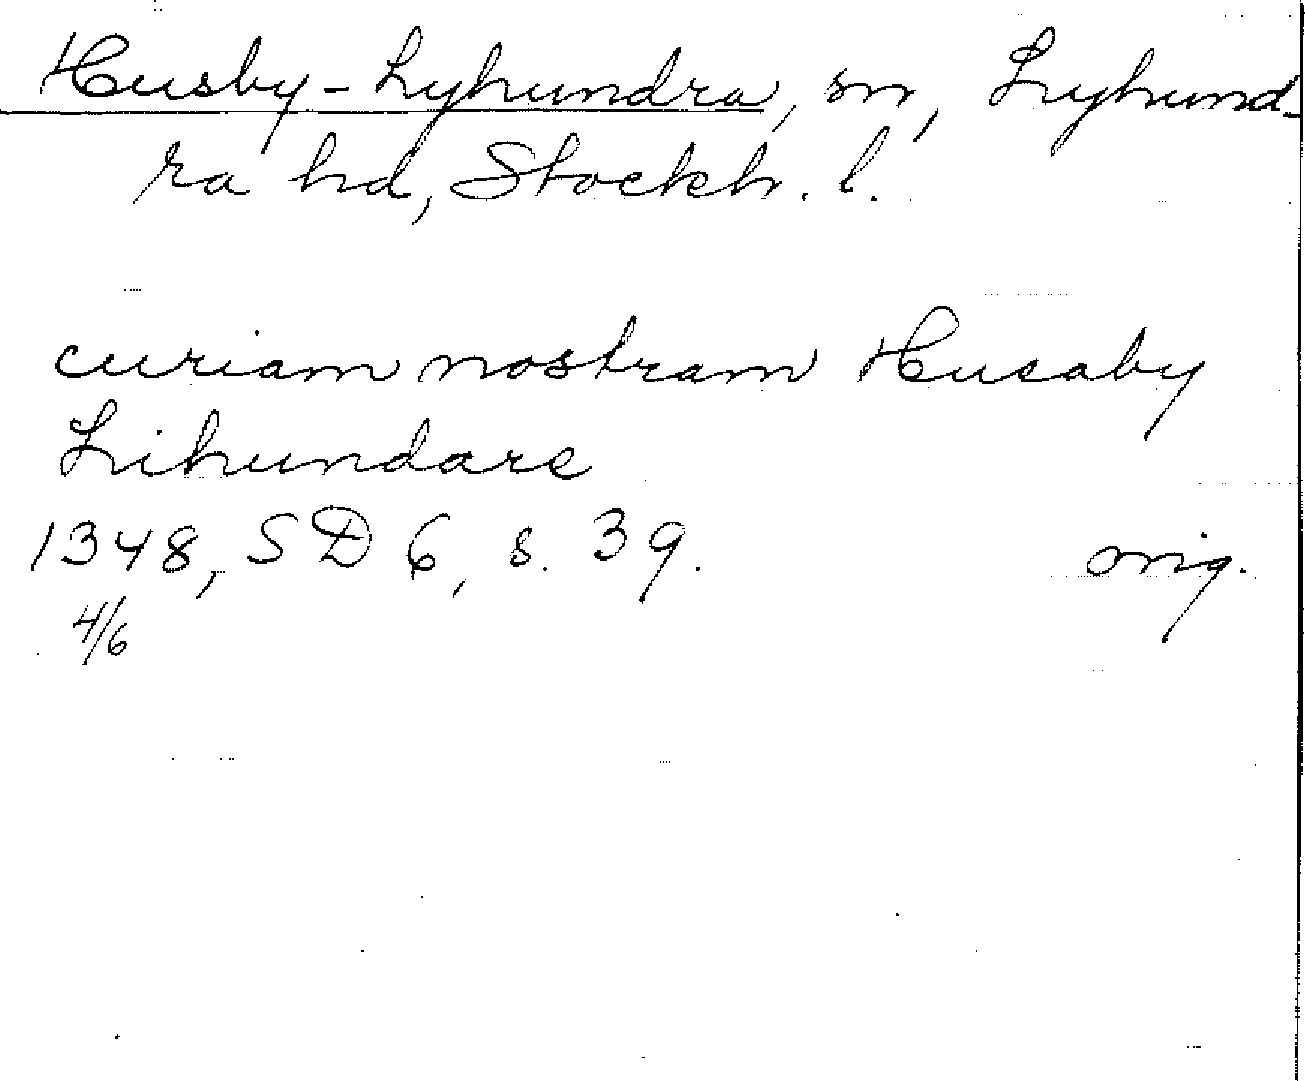 Husby-Lyhundra, sn, Lyhund-
ra hd, Stockh. l.
curiam nostram Husaby
Lihundare
1348, SD 6, s. 39. orig.
4/6